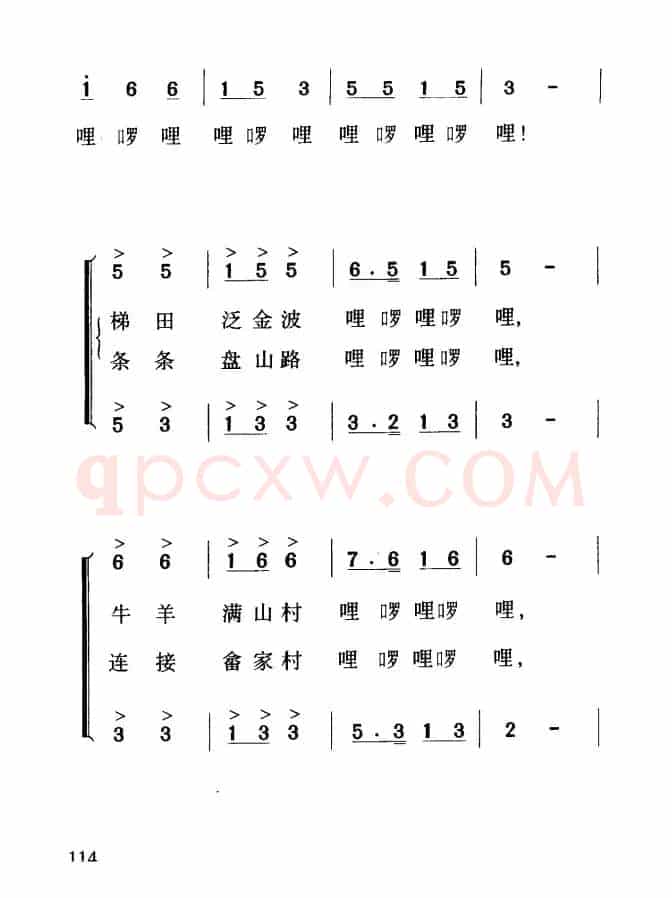 i 6 6 | 1 5 3 | 5 5 1 5 | 3 - |
哩 啰 哩 哩 啰 哩 哩 啰 哩 啰 哩!
> > > > >
5 5 | 1 5 5 | 6 . 5 1 5 | 5 - |
梯 田 泛 金 波 哩 啰 哩 啰 哩,
条 条 盘 山 路 哩 啰 哩 啰 哩,
> > > > >
5 3 | 1 3 3 | 3 . 2 1 3 | 3 - |
qpcxw.COM
> > > > >
6 6 | 1 6 6 | 7 . 6 1 6 | 6 - |
牛 羊 满 山 村 哩 啰 哩 啰 哩,
连 接 畲 家 村 哩 啰 哩 啰 哩,
> > > > >
3 3 | 1 3 3 | 5 . 3 1 3 | 2 - |
114